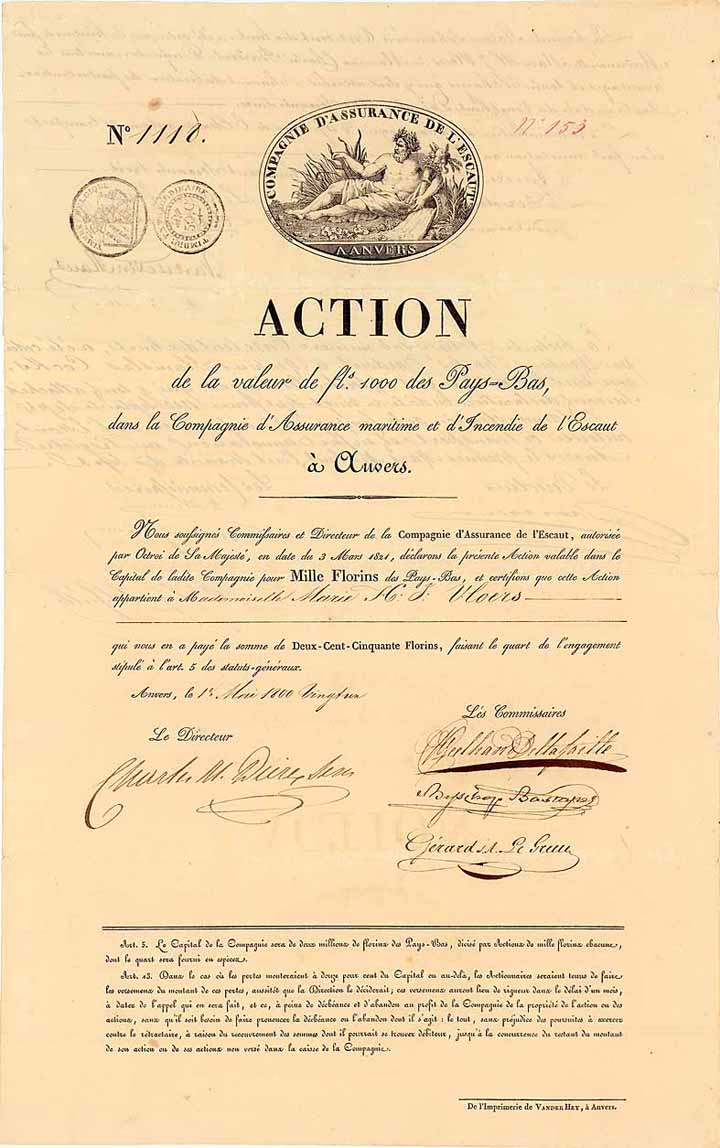 Nº 1118.
Nº 153
COMPAGNIE D'ASSURANCE DE L'ESCAUT
A ANVERS
ACTION
de la valeur de fls. 1000 des Pays=Bas,
dans la Compagnie d'Assurance maritime et d'Incendie de l'Escaut
à Anvers.
Nous soussignés Commissaires et Directeur de la Compagnie d'Assurance de l'Escaut, autorisée
par Octroi de Sa Majesté, en date du 3 Mars 1821, déclarons la présente Action valable dans le
Capital de ladite Compagnie pour Mille Florins des Pays-Bas, et certifions que cette Action
appartient à Mademoiselle Marie
qui nous en a payé la somme de Deux-Cent-Cinquante Florins, faisant le quart de l'engagement
stipulé à l'art. 5 des statuts-généraux.
Anvers, le 1r Mai 1800 vingt un
Lés Commissaires
Le Directeur
Gérard
Art. 5. Le Capital de la Compagnie sera de deux millions de florins des Pays-Bas, divisé par Actions de mille florins chacune,
dont le quart sera fourni en espèces.
Art. 13. Dans le cas où les pertes monteraient à douze pour cent du Capital ou au-delà, les Actionnaires seraient tenus de faire
les versemens du montant de ces pertes, aussitôt que la Direction le déciderait; ces versemens auront lieu de rigueur dans le délai d'un mois,
à dater de l'appel qui en sera fait, et ce, à peine de déchéance et d'abandon au profit de la Compagnie de la propriété de l'action ou des
actions, sans qu'il soit besoin de faire prononcer la déchéance ou l'abandon dont il s'agit: le tout, sans préjudice des poursuites à exercer
contre le réfractaire, à raison du recouvrement des sommes dont il pourrait se trouver débiteur, jusqu'à la concurrence du restant du montant
de son action ou de ses actions non versé dans la caisse de la Compagnie.
De l'Imprimerie de VANDER HEY, à Anvers.